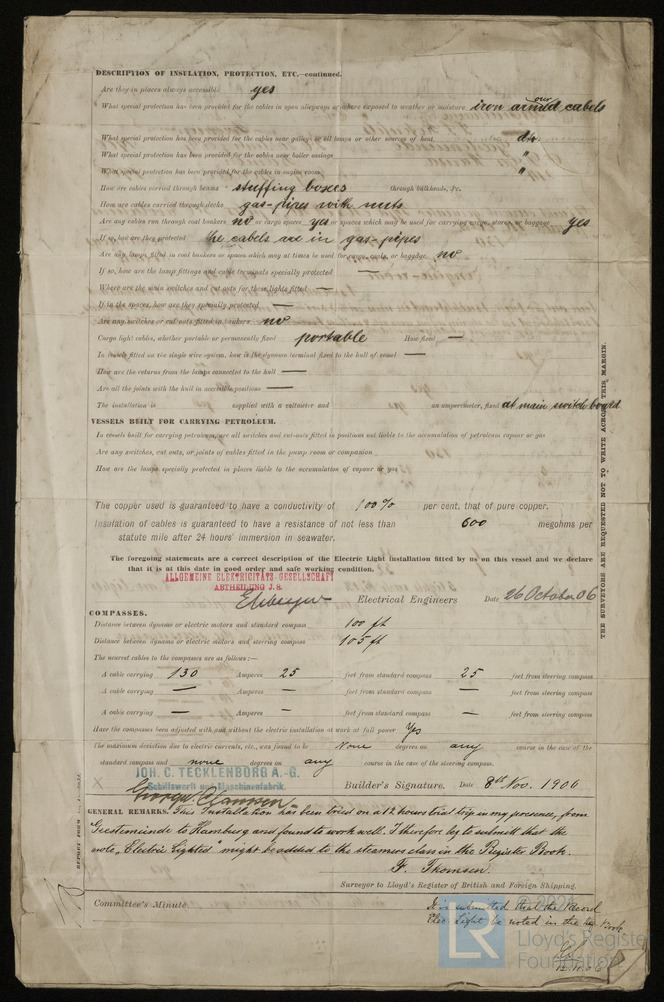 DESCRIPTION OF INSULATION, PROTECTION, ETC.—continued.
Are they in places always accessible yes
What special protection has been provided for the cables in open alleyways or where exposed to weather or moisture iron armoured cabels
What special protection has been provided for the cables near galleys or oil lamps or other sources of heat dto
What special protection has been provided for the cables near boiler casings "
What special protection has been provided for the cables in engine room "
How are cables carried through beams stuffing boxes through bulkheads, &c.
How are cables carried through decks gas-pipes with nuts
Are any cables run through coal bunkers no or cargo spaces yes or spaces which may be used for carrying cargo, stores, or baggage yes
If so, how are they protected the cabels are in gas-pipes
Are any lamps fitted in coal bunkers or spaces which may at times be used for cargo, coals, or baggage no
If so, how are the lamp fittings and cable terminals specially protected —
Where are the main switches and cut outs for these lights fitted —
If in the spaces, how are they specially protected —
Are any switches or cut outs fitted in bunkers no
Cargo light cables, whether portable or permanently fixed portable How fixed —
In vessels fitted on the single wire system, how is the dynamo terminal fixed to the hull of vessel —
How are the returns from the lamps connected to the hull —
Are all the joints with the hull in accessible positions —
The installation is supplied with a voltmeter and an amperemeter, fixed at main switch board
VESSELS BUILT FOR CARRYING PETROLEUM.
In vessels built for carrying petroleum, are all switches and cut-outs fitted in positions not liable to the accumulation of petroleum vapour or gas
Are any switches, cut outs, or joints of cables fitted in the pump room or companion
How are the lamps specially protected in places liable to the accumulation of vapour or gas
The copper used is guaranteed to have a conductivity of 100% per cent. that of pure copper.
Insulation of cables is guaranteed to have a resistance of not less than 600 megohms per
statute mile after 24 hours' immersion in seawater.
The foregoing statements are a correct description of the Electric Light installation fitted by us on this vessel and we declare
that it is at this date in good order and safe working condition.
ALLGEMEINE ELEKTRICITÄTS-GESELLSCHAFT
ABTHEILUNG J.S.
Electrical Engineers Date 26 October 06
COMPASSES.
Distance between dynamo or electric motors and standard compass 100 ft
Distance between dynamo or electric motors and steering compass 105 ft
The nearest cables to the compasses are as follows:—
A cable carrying 130 Amperes 25 feet from standard compass 25 feet from steering compass
A cable carrying — Amperes — feet from standard compass — feet from steering compass
A cable carrying — Amperes — feet from standard compass — feet from steering compass
Have the compasses been adjusted with and without the electric installation at work at full power Yes
The maximum deviation due to electric currents, etc., was found to be None degrees on any course in the case of the
standard compass and none degrees on any course in the case of the steering compass.
JOH. C. TECKLENBORG A.-G.
Schiffswerft und Maschinenfabrik.
Builder's Signature. Date 8th Nov. 1906
GENERAL REMARKS. This Installation has been tried on a 12 hours trial trip in my presence, from
Geestemünde to Hamburg and found to work well. I therefore beg to submit that the
note „Electric Lighted" might be added to the steamers class in the Register Book.
F. Thomsen.
Surveyor to Lloyd's Register of British and Foreign Shipping.
Committee's Minute
It is submitted that the Record
Elec. Light be noted in the Reg. Book
12.11.06
THE SURVEYORS ARE REQUESTED NOT TO WRITE ACROSS THIS MARGIN.
LR
Lloyd's Register
Foundation